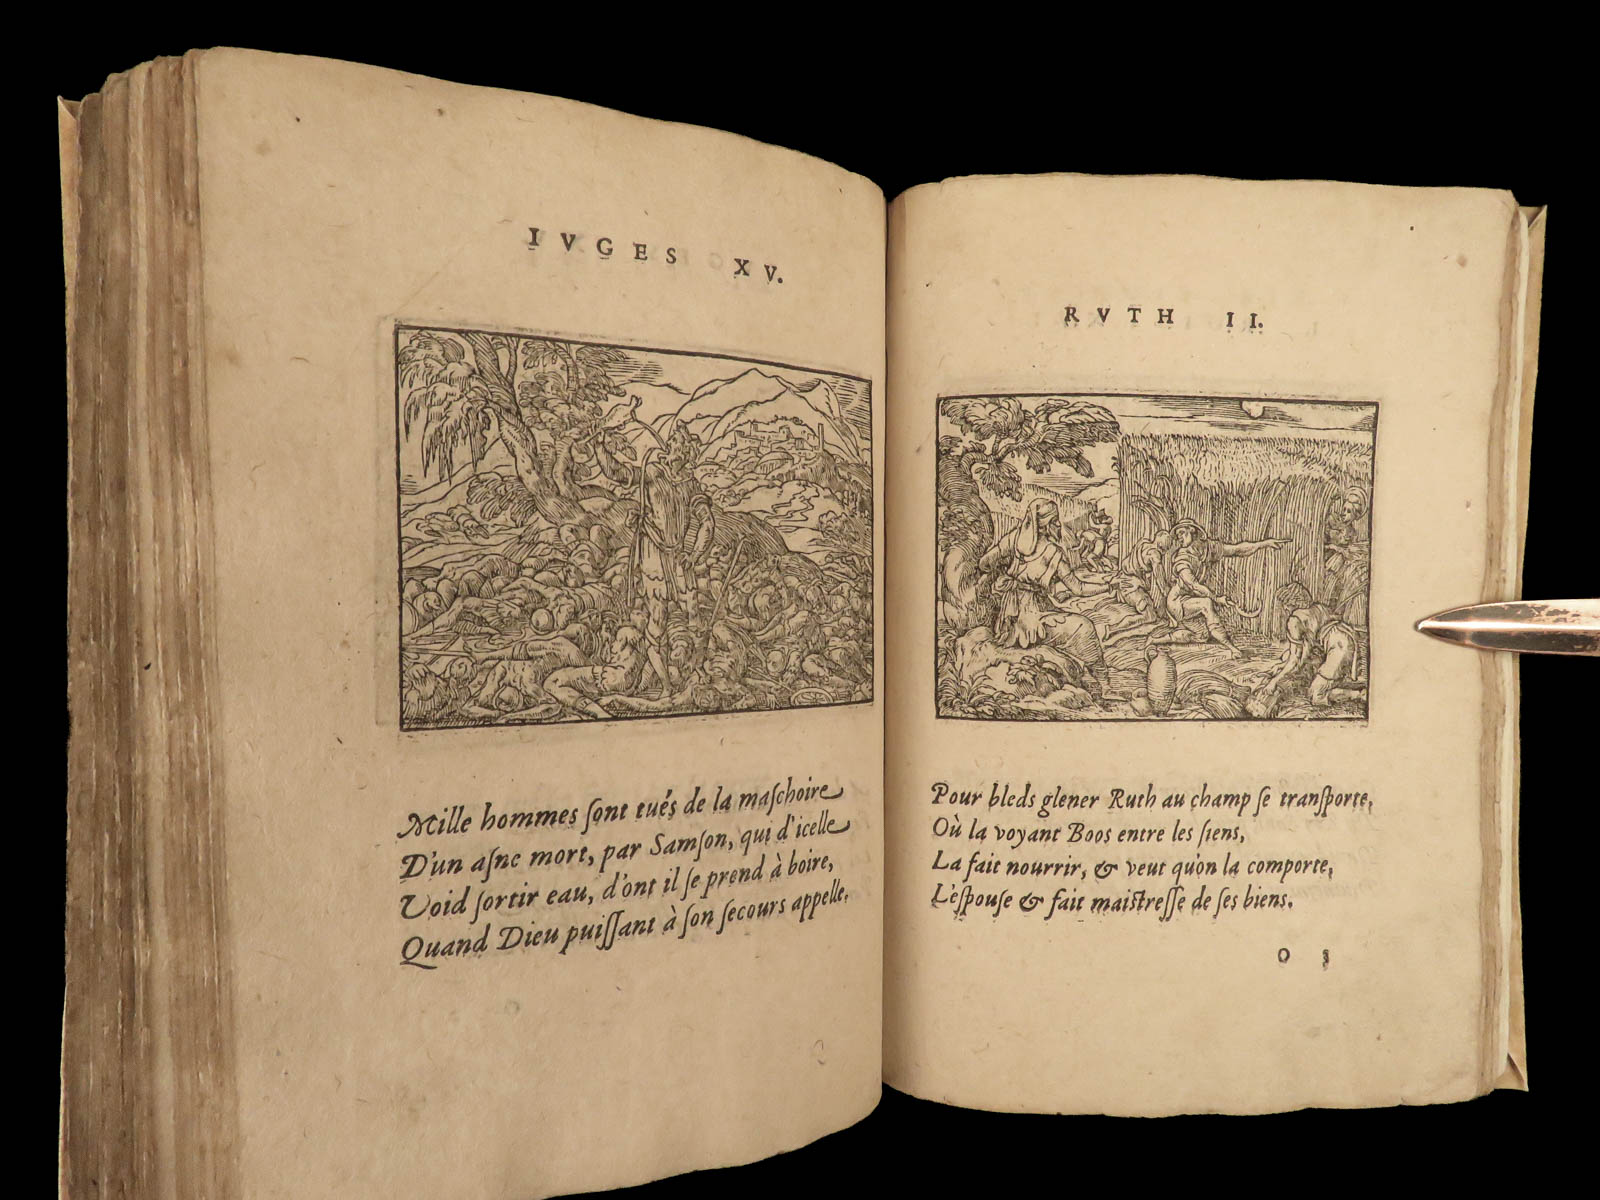 IVGES XV.
Mille hommes ſont tués de la maſchoire
D'un aſne mort, par Samſon, qui d'icelle
Void ſortir eau, d'ont il ſe prend à boire,
Quand Dieu puiſſant à ſon ſecours appelle.
RVTH II.
Pour bleds glener Ruth au champ ſe tranſporte,
Où la voyant Boos entre les ſiens,
La fait nourrir, & veut qu'on la comporte,
L'eſpouſe & fait maiſtreſſe de ſes biens.
O 3